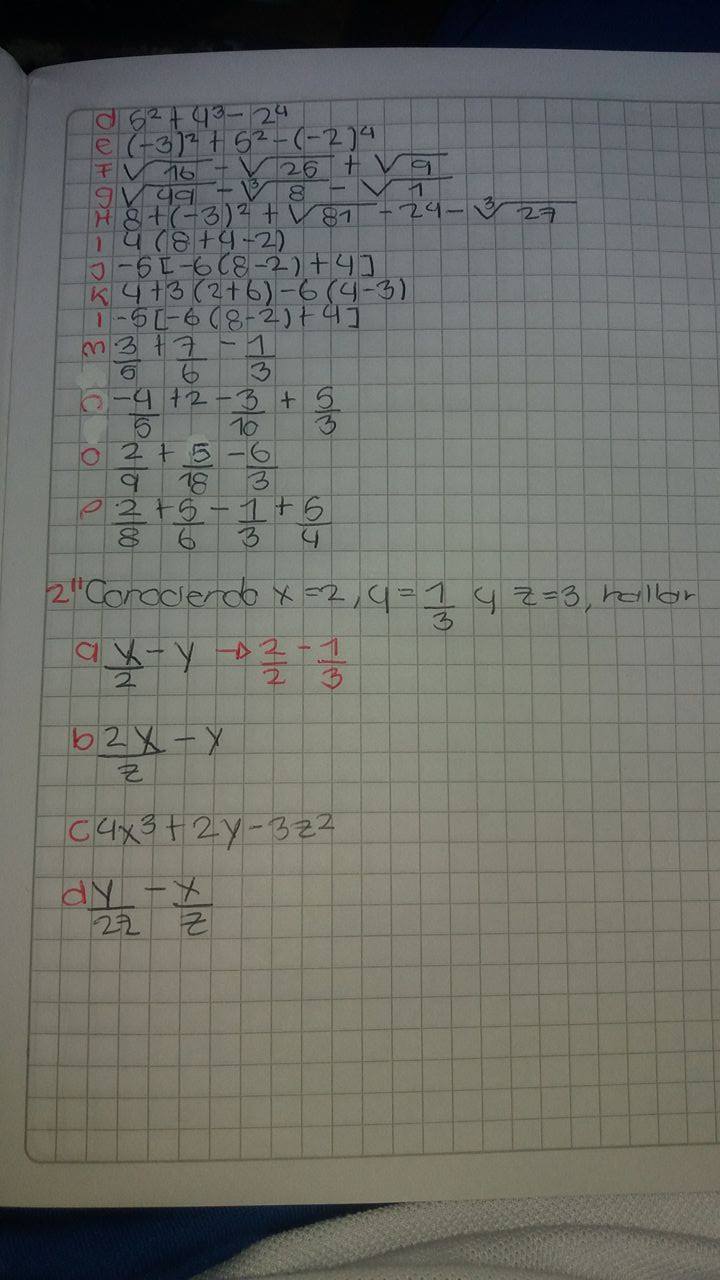 d 5² + 4³ - 2⁴
e (-3)² + 5² - (-2)⁴
F √16 - √25 + √9
g √49 - ³√8 - √1
H 8 + (-3)² + √81 - 24 - ³√27
I 4 (8+4-2)
J -5[-6(8-2)+4]
K 4+3(2+6)-6(4-3)
l -5[-6(8-2)+4]
m 3/5 + 7/6 - 1/3
n -4/5 + 2 - 3/10 + 5/3
o 2/9 + 5/18 - 6/3
p 2/8 + 5/6 - 1/3 + 5/4
2" Conociendo x=2, y=1/3 y z=3, hallar
a x/2 - y → 2/2 - 1/3
b 2x/z - y
c 4x³ + 2y - 3z²
d y/2z - x/z